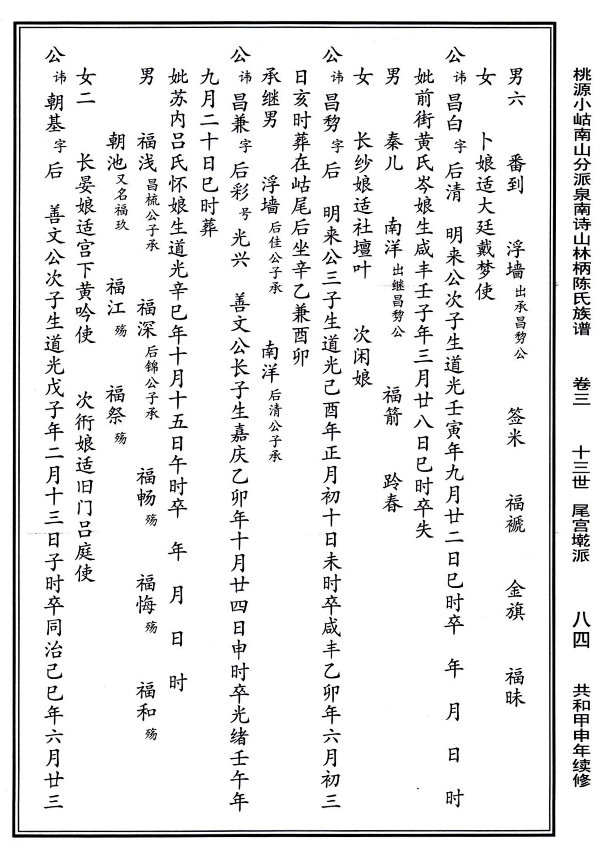 桃源小岵南山分派泉南诗山林柄陈氏族谱 卷三 十三世 尾宫墘派 八四 共和甲申年续修
男六 番到 浮墙出承昌黎公 签米 福褫 金旗 福昧
女 卜娘适大廷戴梦使
公讳昌白字后清 明来公次子生道光壬寅年九月廿二日巳时卒 年 月 日 时
妣前街黄氏岑娘生咸丰壬子年三月廿八日巳时卒失
男 秦儿 南洋出继昌黎公 福箭 跉春
女 长纱娘适社壇叶 次闲娘
公讳昌黎字后 明来公三子生道光己酉年正月初十日未时卒咸丰乙卯年六月初三
日亥时葬在岵尾后坐辛乙兼酉卯
承继男 浮墙后佳公子承 南洋后清公子承
公讳昌兼字后彩号光兴 善文公长子生嘉庆乙卯年十月廿四日申时卒光绪壬午年
九月二十日巳时葬
妣苏内吕氏怀娘生道光辛巳年十月十五日午时卒 年 月 日 时
男 福浅昌梳公子承 福深后锦公子承 福畅殇 福悔殇 福和殇
朝池又名福玖 福江殇 福祭殇
女二 长晏娘适宫下黄吟使 次衎娘适旧门吕庭使
公讳朝基字后 善文公次子生道光戊子年二月十三日子时卒同治己巳年六月廿三